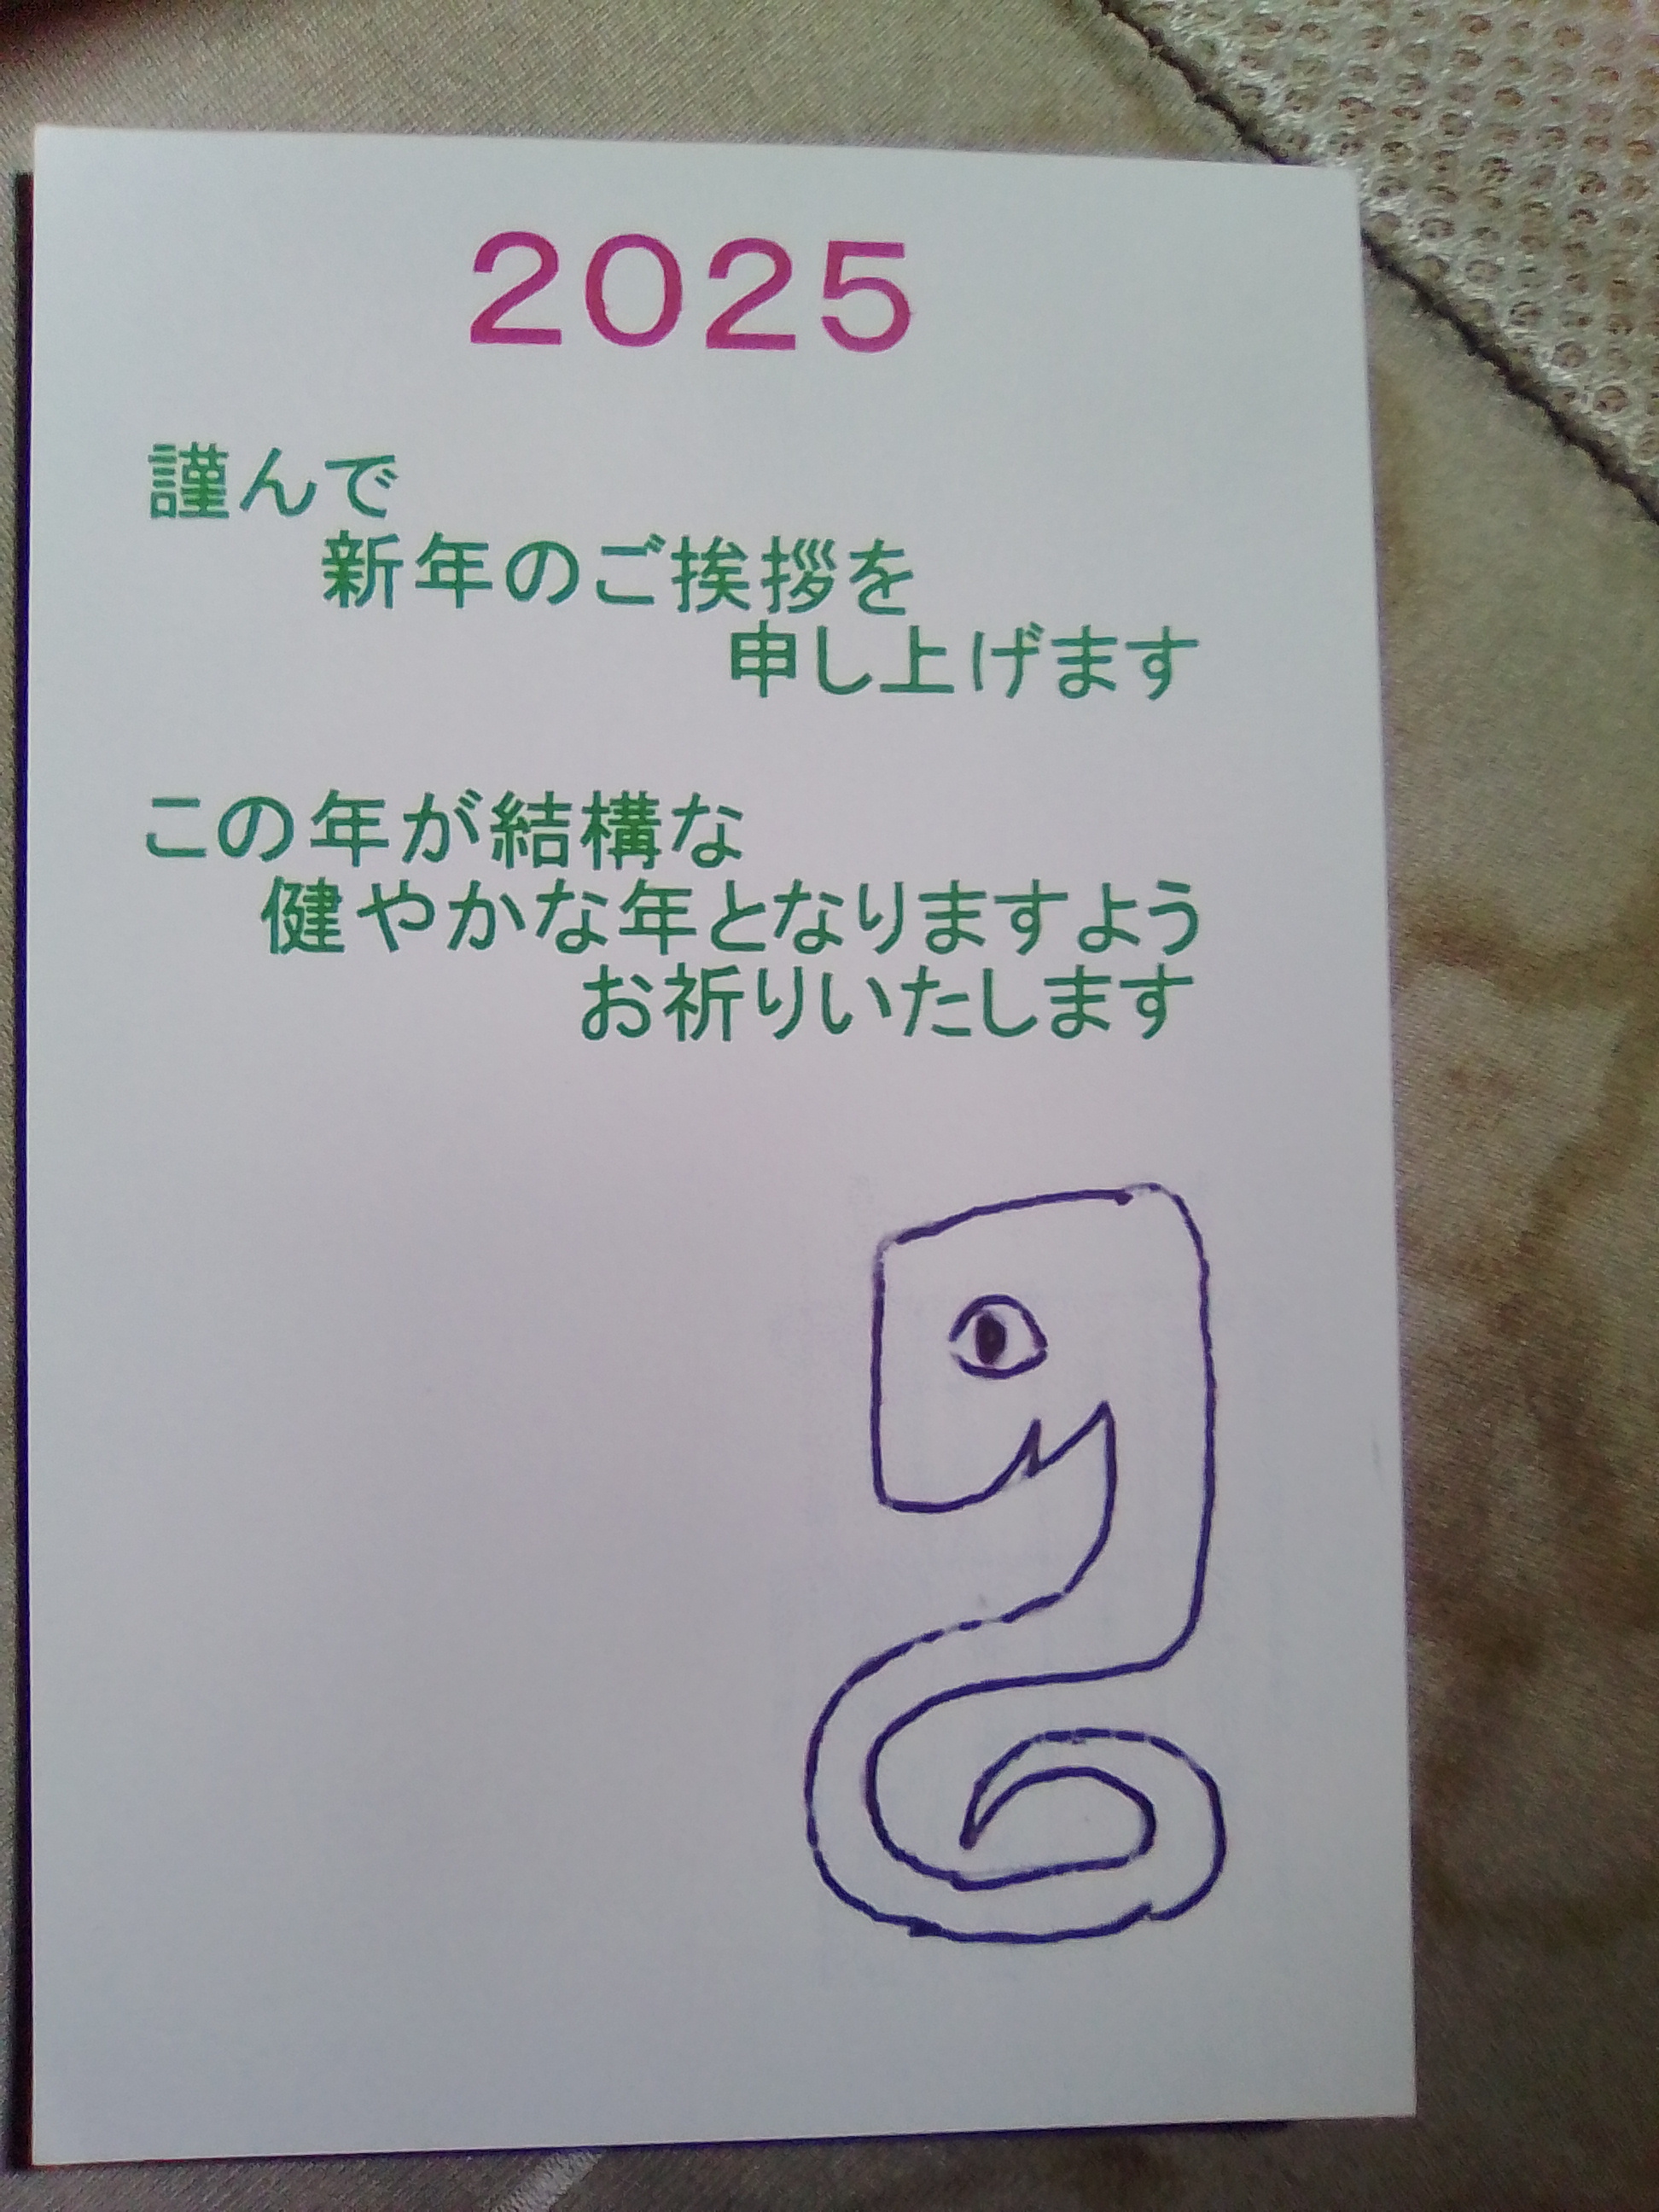 2025
謹んで
新年のご挨拶を
申し上げます
この年が結構な
健やかな年となりますよう
お祈りいたします